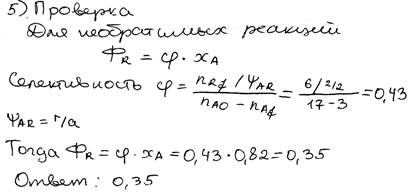 5) Проверка
Для необратимых реакций
Φ_R = φ · x_A
Селективность φ = (n_Rf / Ψ_AR) / (n_A0 − n_Af) = (6/2/2) / (17−3) = 0,43
Ψ_AR = r/a
Тогда Φ_R = φ · x_A = 0,43 · 0,82 = 0,35
Ответ: 0,35